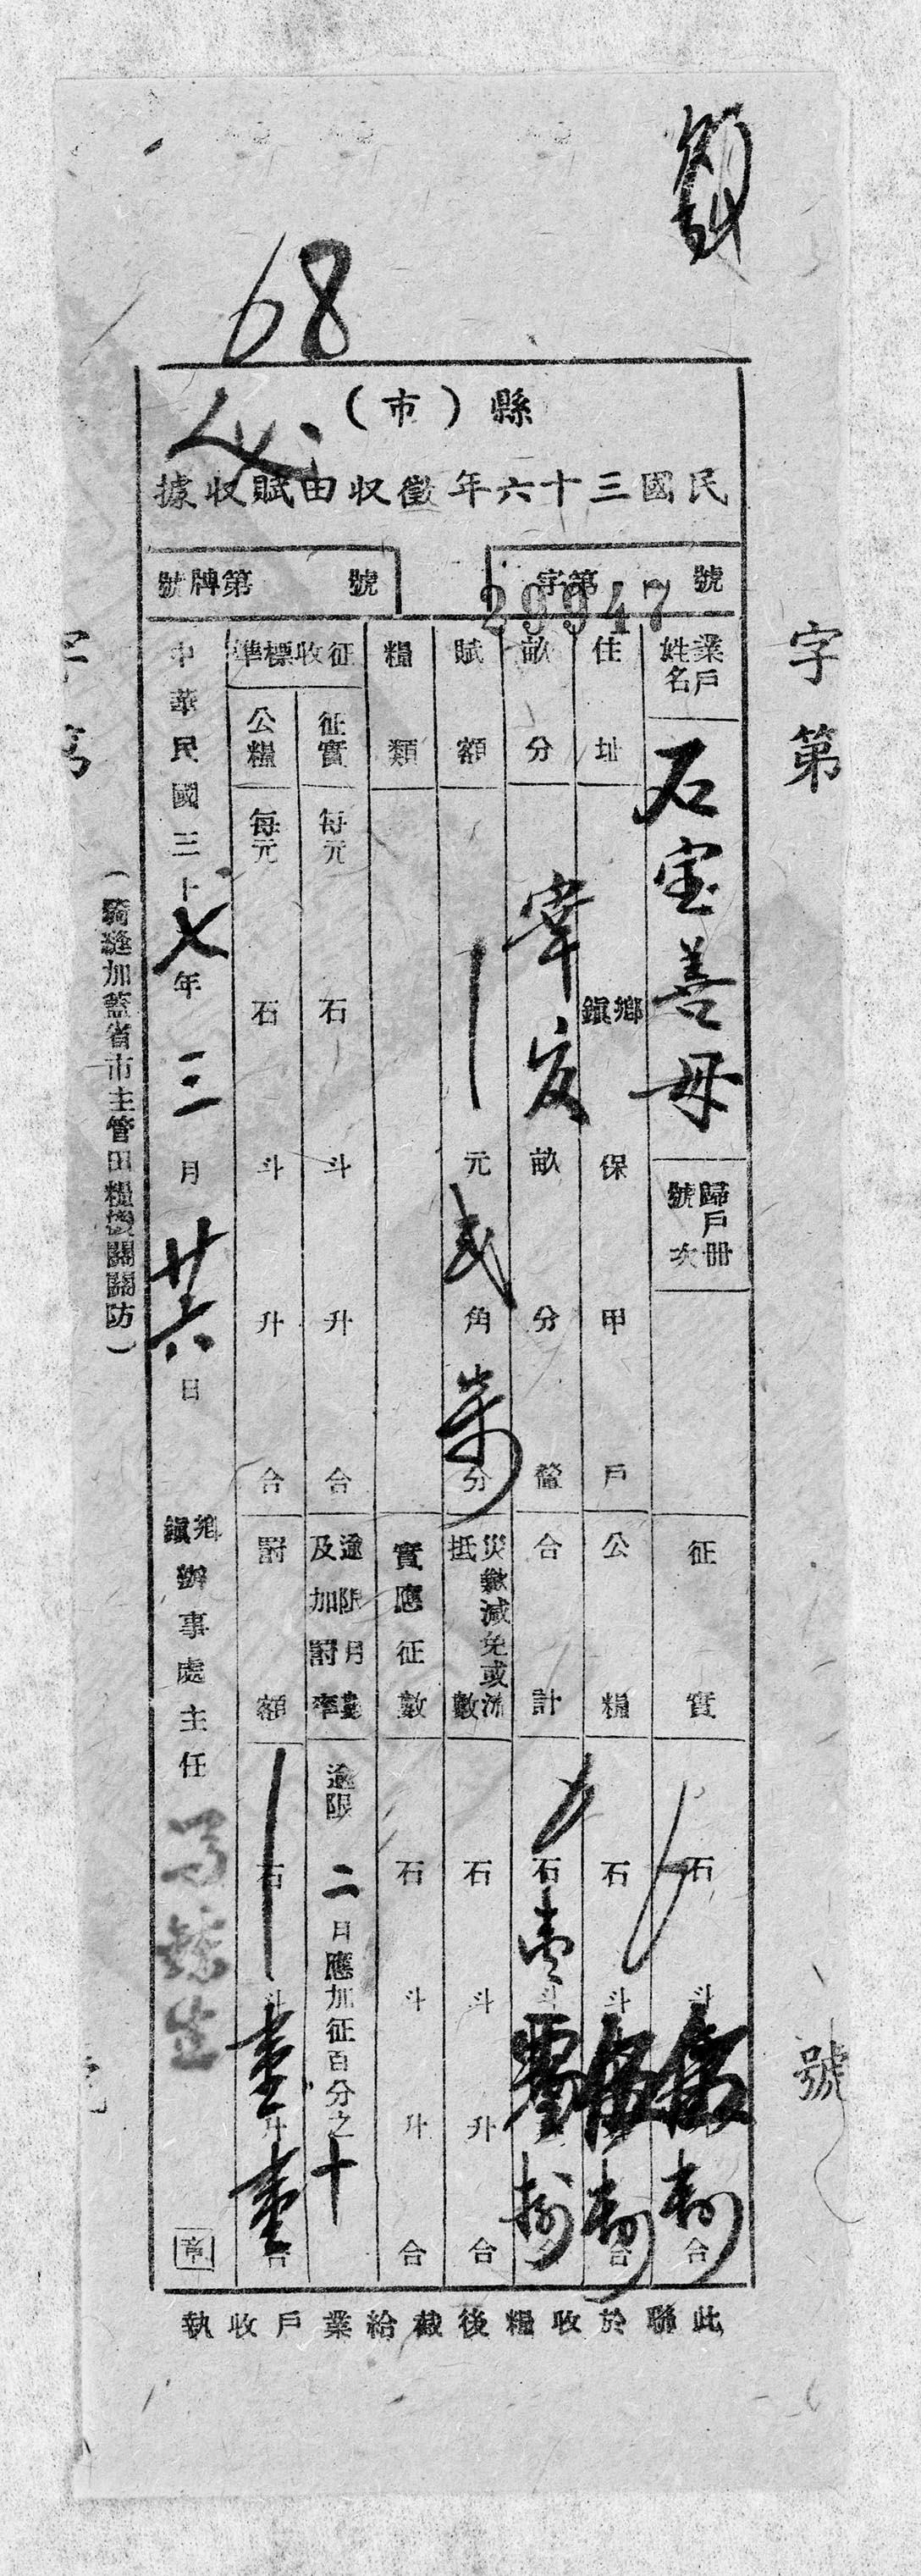 68
縣（市）
民國三十六年徵收田賦收據
字第29947號
號牌第 號
業戶姓名 石宝善母
歸戶冊號次
住址 鄉鎮 保 甲 戶
畝分 畝 分 釐
賦額 元 弍角 分
糧類
征收標準
征實 每元 石 斗 升 合
公糧 每元 石 斗 升 合
中華民國三十七年三月廿六日
征實 石 斗 伍 合
公糧 石 斗 伍 合
合計 石壹斗
災歉減免或流抵數 石 斗 升 合
實應征數 石 斗 升 合
逾限月數及加罰率 逾限二日應加征百分之十
罰額 石 斗壹升壹合
鄉鎮辦事處主任
章
此聯於收糧後截給業戶收執
字第 號
（騎縫加蓋省市主管田糧機關關防）
字第